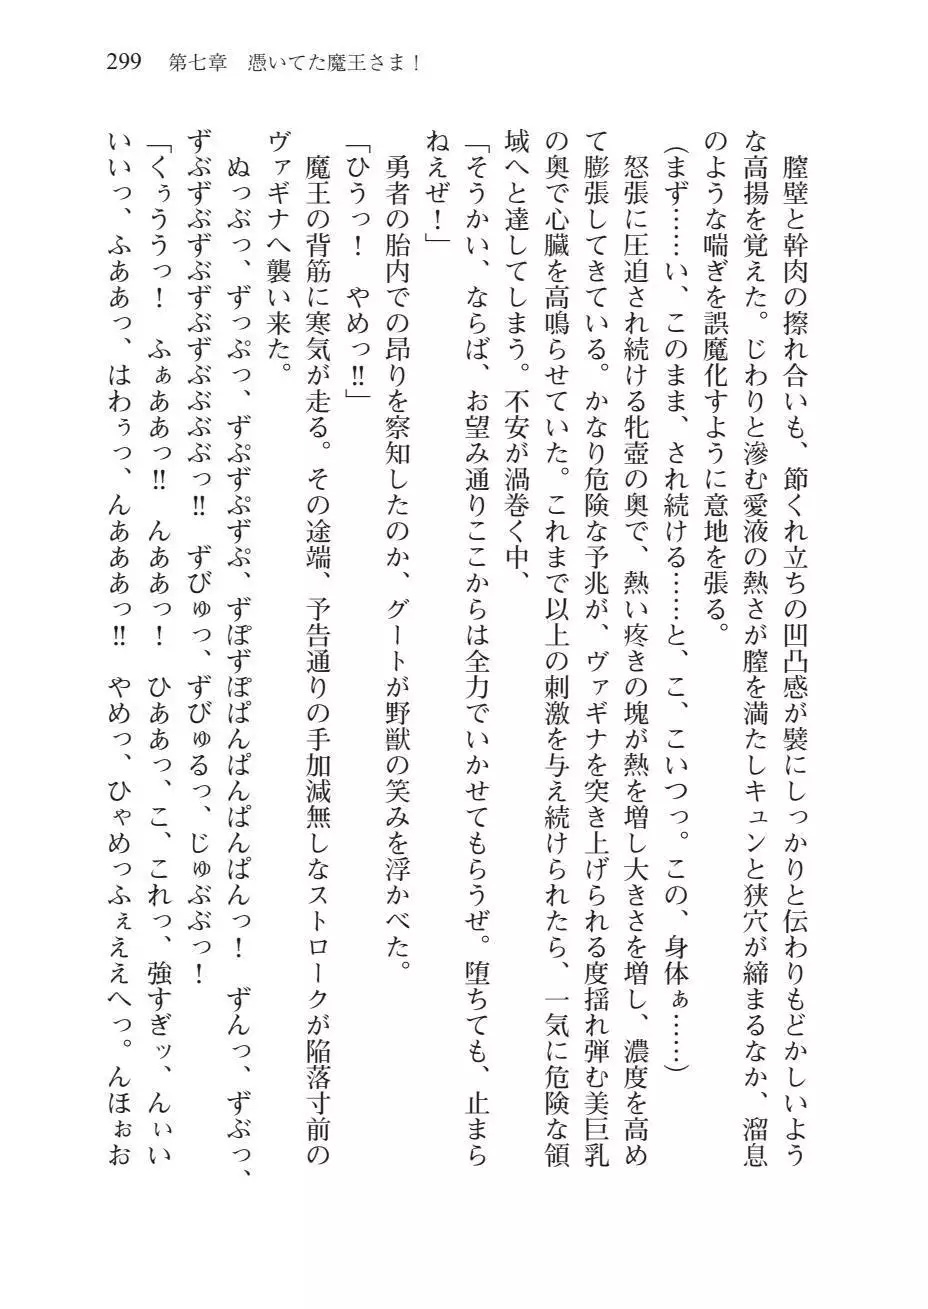 299　第七章　憑いてた魔王さま！
　膣壁と幹肉の擦れ合いも、節くれ立ちの凹凸感が襞にしっかりと伝わりもどかしいよう
な高揚を覚えた。じわりと滲む愛液の熱さが膣を満たしキュンと狭穴が締まるなか、溜息
のような喘ぎを誤魔化すように意地を張る。
（まず……い、このまま、され続ける……と、こ、こいつっ。この、身体ぁ……）
　怒張に圧迫され続ける牝壺の奥で、熱い疼きの塊が熱を増し大きさを増し、濃度を高め
て膨張してきている。かなり危険な予兆が、ヴァギナを突き上げられる度揺れ弾む美巨乳
の奥で心臓を高鳴らせていた。これまで以上の刺激を与え続けられたら、一気に危険な領
域へと達してしまう。不安が渦巻く中、
「そうかい、ならば、お望み通りここからは全力でいかせてもらうぜ。堕ちても、止まら
ねえぜ！」
　勇者の胎内での昂りを察知したのか、グートが野獣の笑みを浮かべた。
「ひうっ！　やめっ‼」
　魔王の背筋に寒気が走る。その途端、予告通りの手加減無しなストロークが陥落寸前の
ヴァギナへ襲い来た。
　ぬっぶっ、ずっぷっ、ずぷずぷずぷ、ずぽずぽぱんぱんぱんぱんっ！　ずんっ、ずぶっ、
ずぶずぶずぶずぶずぶぶぶぶっ‼　ずびゅっ、ずびゅるっ、じゅぶぶっ！
「くぅううっ！　ふぁああっ‼　んああっ！　ひああっ、こ、これっ、強すぎッ、んぃい
いいっ、ふああっ、はわぅっ、んあああっ‼　やめっ、ひゃめっふぇええへっ。んほぉお